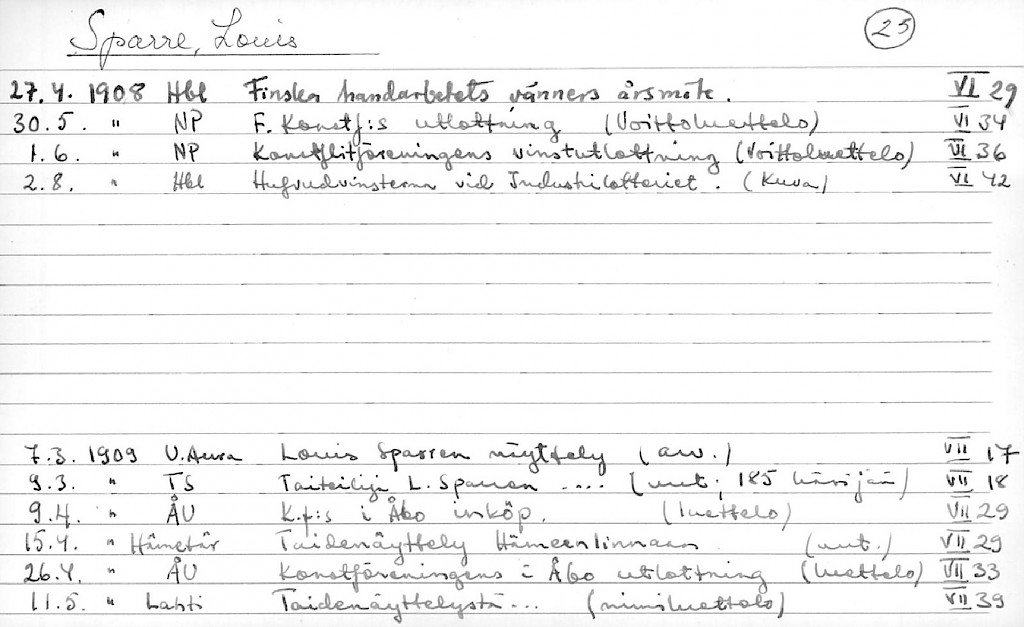 Sparre, Louis 25
27.4. 1908 Hbl Finska handarbetets vänners årsmöte. VI 29
30.5. " NP F. Konstf:s utlottning (Voittoluettelo) VI 34
1.6. " NP Konstflitföreningens vinstutlottning (Voittoluettelo) VI 36
2.8. " Hbl Hufvudvinsterna vid Industrilotteriet. (Kuva) VI 42
7.3. 1909 U. Aura Louis Sparren näyttely (arv.) VII 17
9.3. " TS Taiteilija L. Sparren .... (uut., 185 kävijää) VII 18
9.4. " ÅU K.f:s i Åbo inköp. (luettelo) VII 29
15.4. " Hämetär Taidenäyttely Hämeenlinnassa (uut.) VII 29
26.4. " ÅU Konstföreningens i Åbo utlottning (luettelo) VII 33
11.5. " Lahti Taidenäyttelystä... (nimiluettelo) VII 39